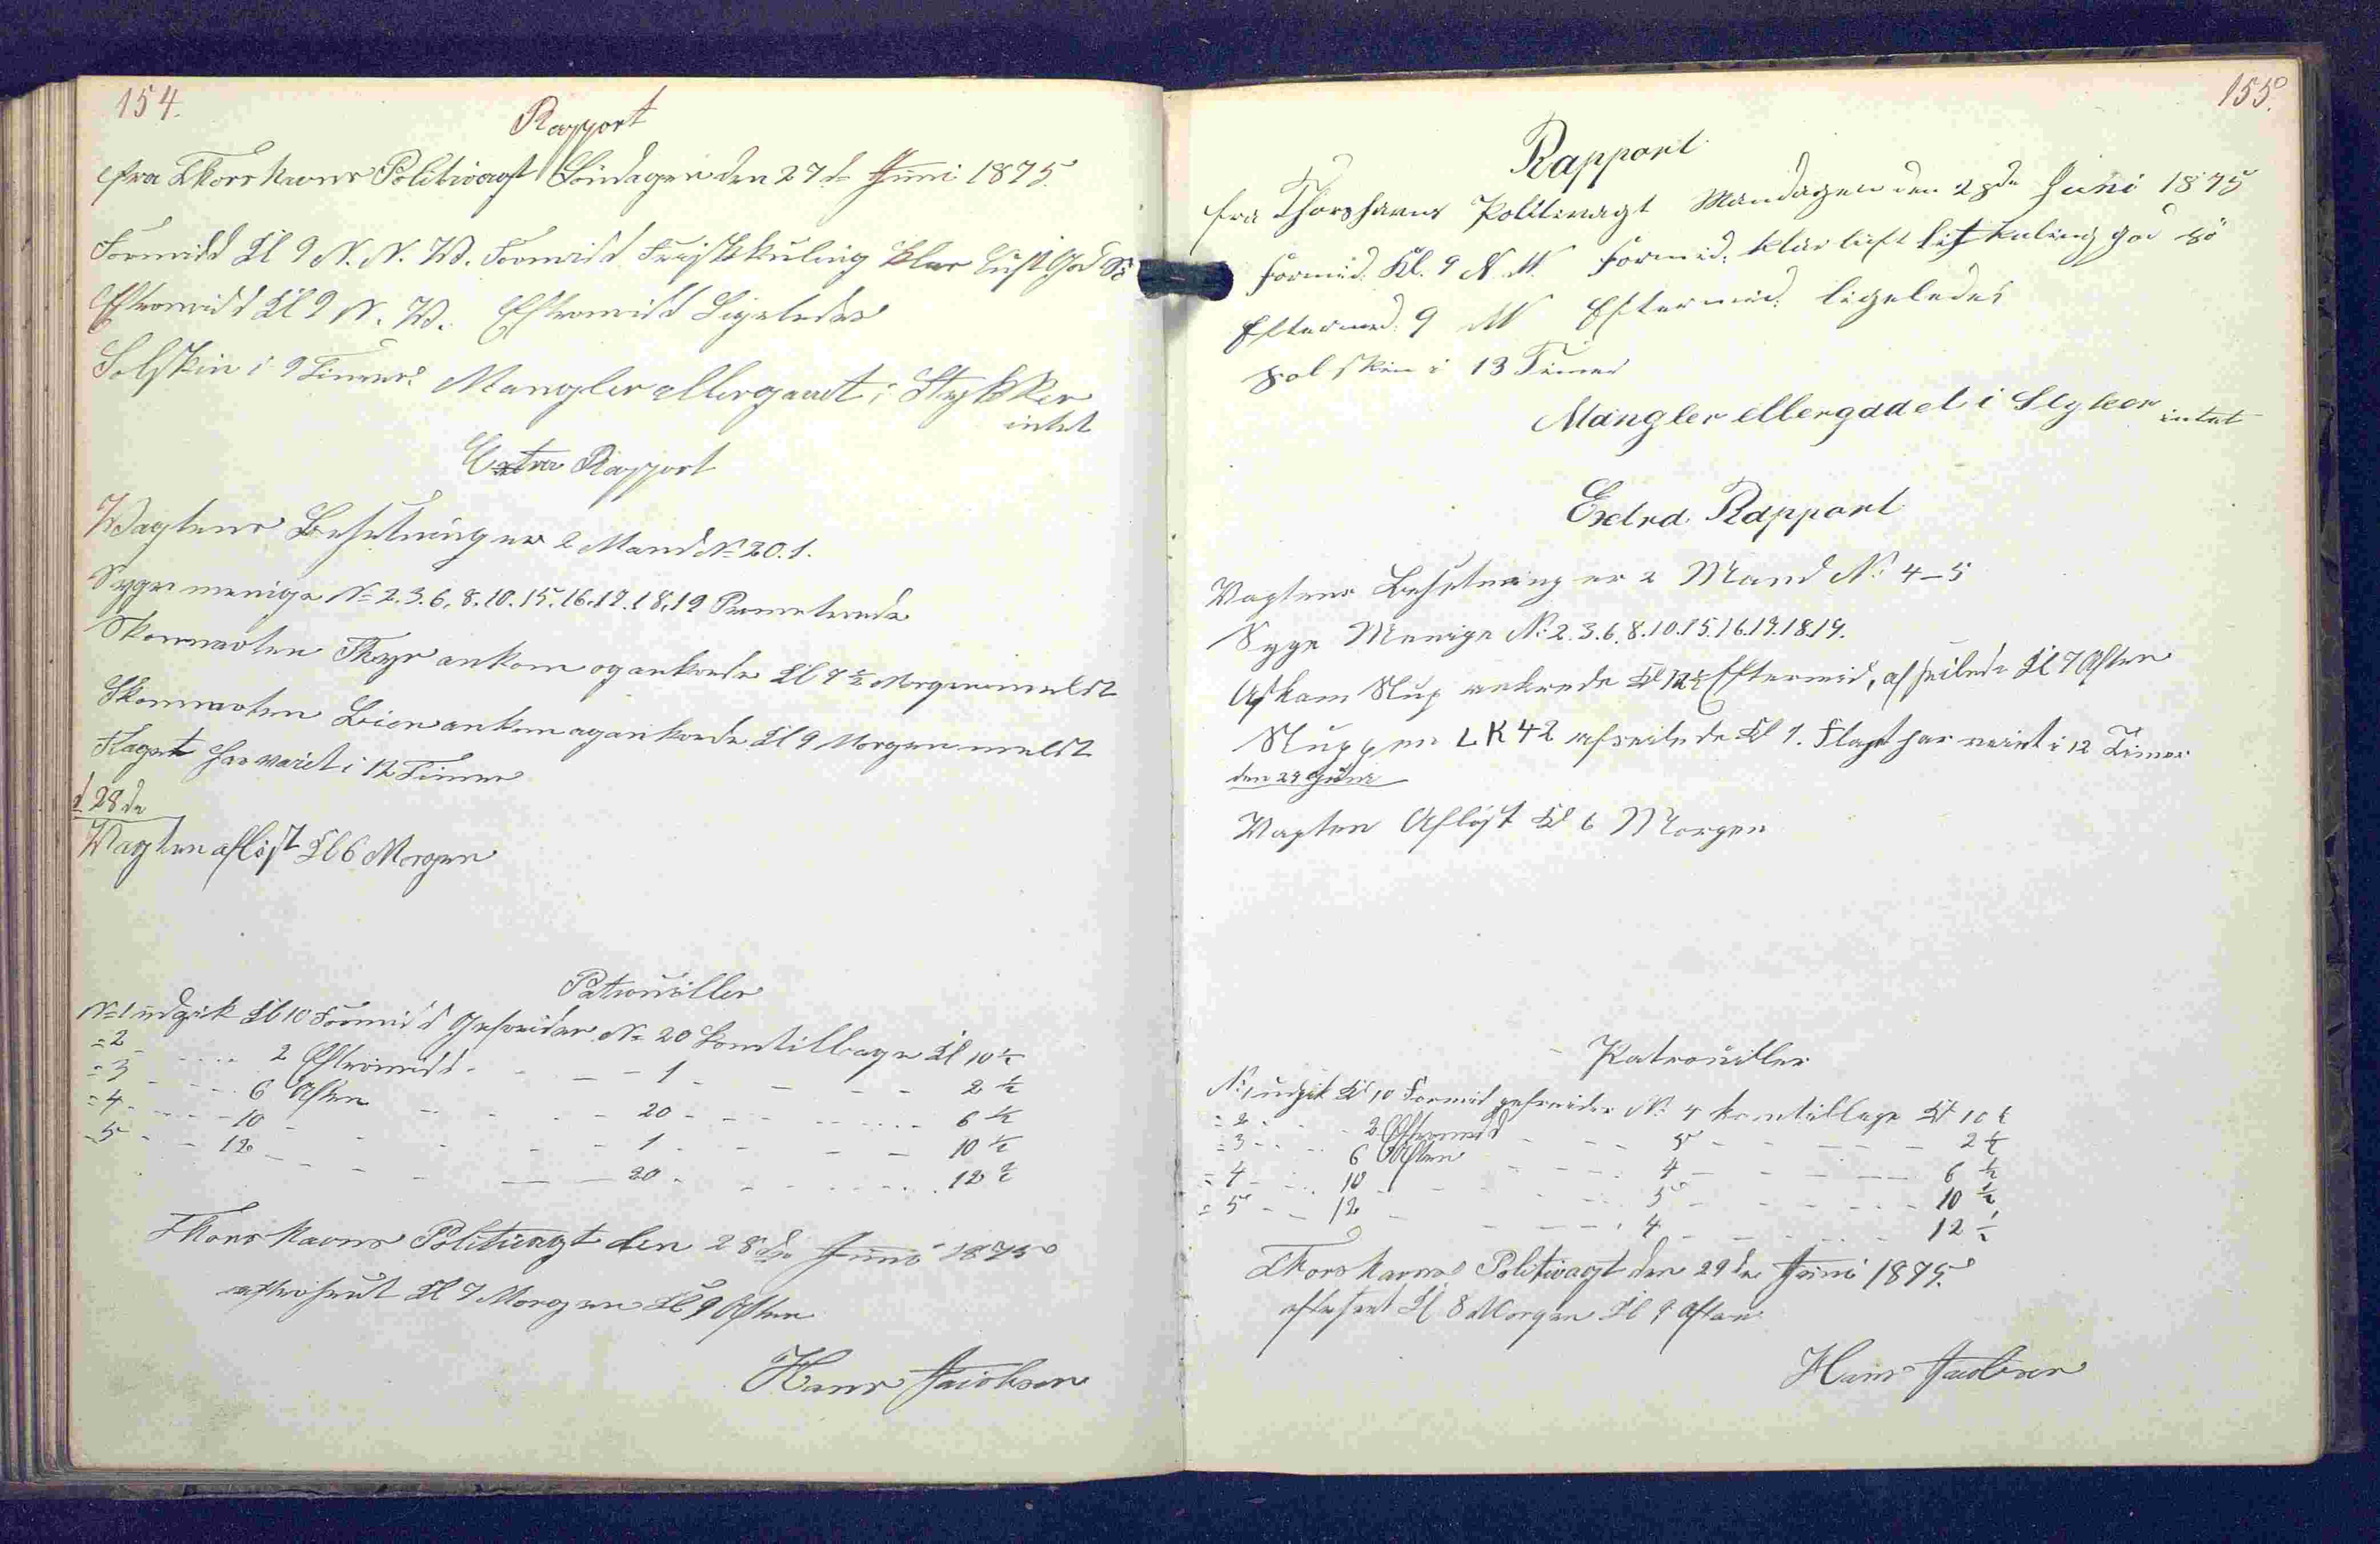 154.
Rapport
fra Thorshavns Politivagt Söndagen den 27d Juni 1875.
Formidd Kl 9 N. N. W. Formidd Friskkuling klar luft God Sö
Eftermidd Kl 9 N. W. Eftermidd Ligeledes
Solskin i 9 Timer. Mangler ellergaaet i Stykker
intet
Extra Rapport
Wagtens Besetning er 2 Mand No 20. 1.
Syge menige No 2. 3. 6. 8. 10. 15. 16. 17. 18. 19
Skonnerten Thyr ankom og ankrede Kl 7½ Morgen meldt
Skonnerten ankom og ankrede Kl 9 Morgen meldt
Flaget har været i 12 Timer
d 28de
Wagten aflöst Kl 6 Morgen
Patrouiller
No 1 udgik Kl 10 Formidd Gefreider No 20 kom tilbage Kl 10½
= 2 - - 2 Eftermidd - - 1 - - 2½
= 3 - - 6 Aften - - 20 - - 6½
= 4 - - 10 - - 1 - - 10½
= 5 - - 12 - - 20 - - 12½
Thorshavns Politivagt den 28de Juni 1875
efterseet Kl 7 Morgen Kl 9 Aften
Hans Jacobsen
155.
Rapport
fra Thorshavns Politivagt Mandagen den 28de Juni 1875
Formid. Kl. 9 N W. Formid. klar luft let kuling god sö
Eftermd. 9 W Eftermid. ligeledes
Solskin i 13 Timer
Mangler ellergaaet i Stykker intet
Extra Rapport
Vagtens Besetning er 2 Mand No 4-5
Syge Menige No 2. 3. 6. 8. 10. 15. 16. 17. 18. 19.
Askam Slup ankrede Kl 12½ Eftermid, afseilede Kl 7 Aften
Sluppen LK 42 afseilede Kl 1. Flaget har været i 12 Timer
den 29 Juni
Vagten Aflöst Kl 6 Morgen
Patrouiller
No 1 udgik Kl 10 Formid gefreider No 4 kom tilbage Kl 10½
= 2 - - 2 Eftermidd - - 5 - - 2½
= 3 - - 6 Aften - - 4 - - 6½
= 4 - - 10 - - 5 - - 10½
= 5 - - 12 - - 4 - - 12½
Thorshavns Politivagt den 29de Juni 1875.
efterseet Kl 8 Morgen Kl 9 Aften
Hans Jacobsen